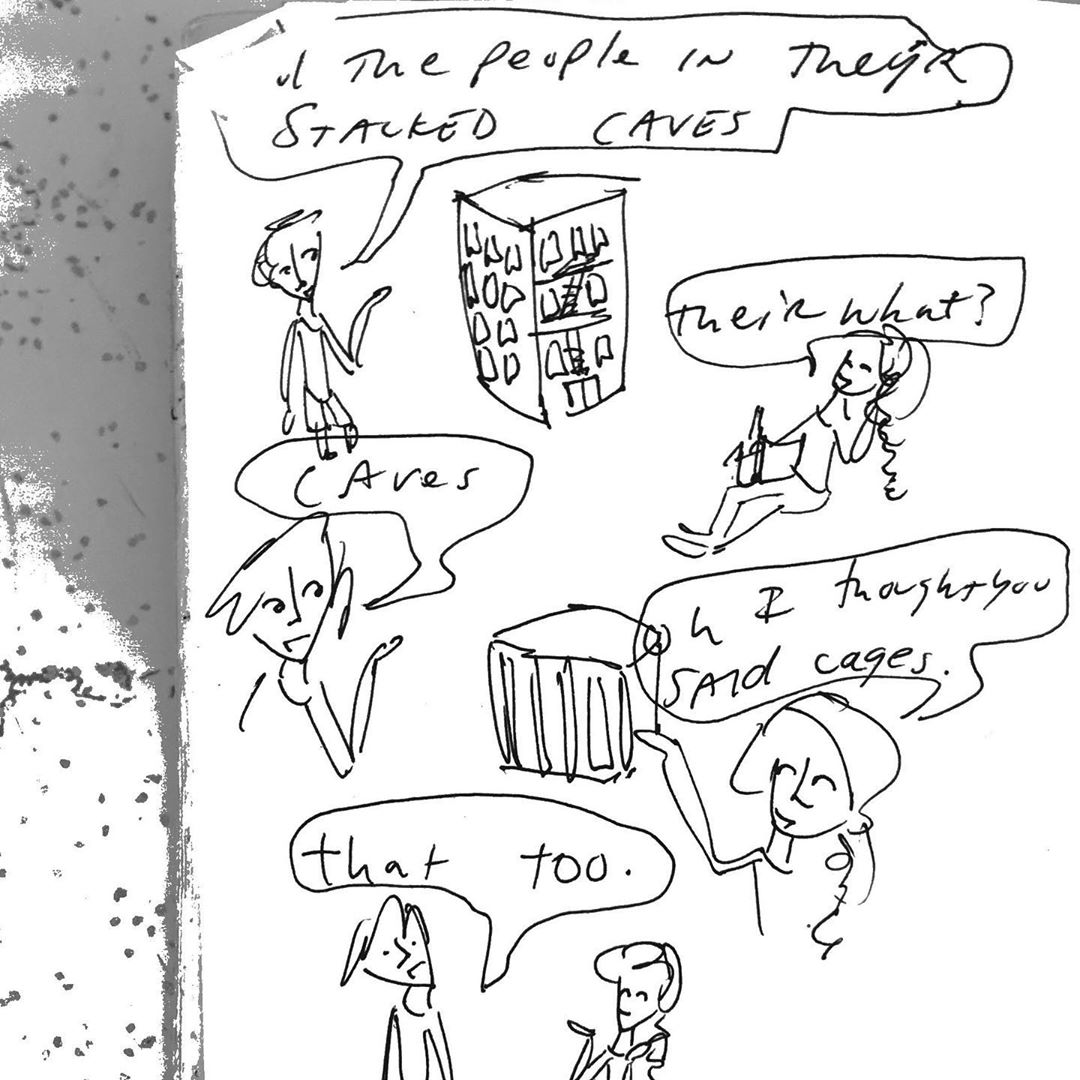 The people IN TheiR
STACKED CAVES
their what?
CAves
h I thought you
SAId cages.
that too.